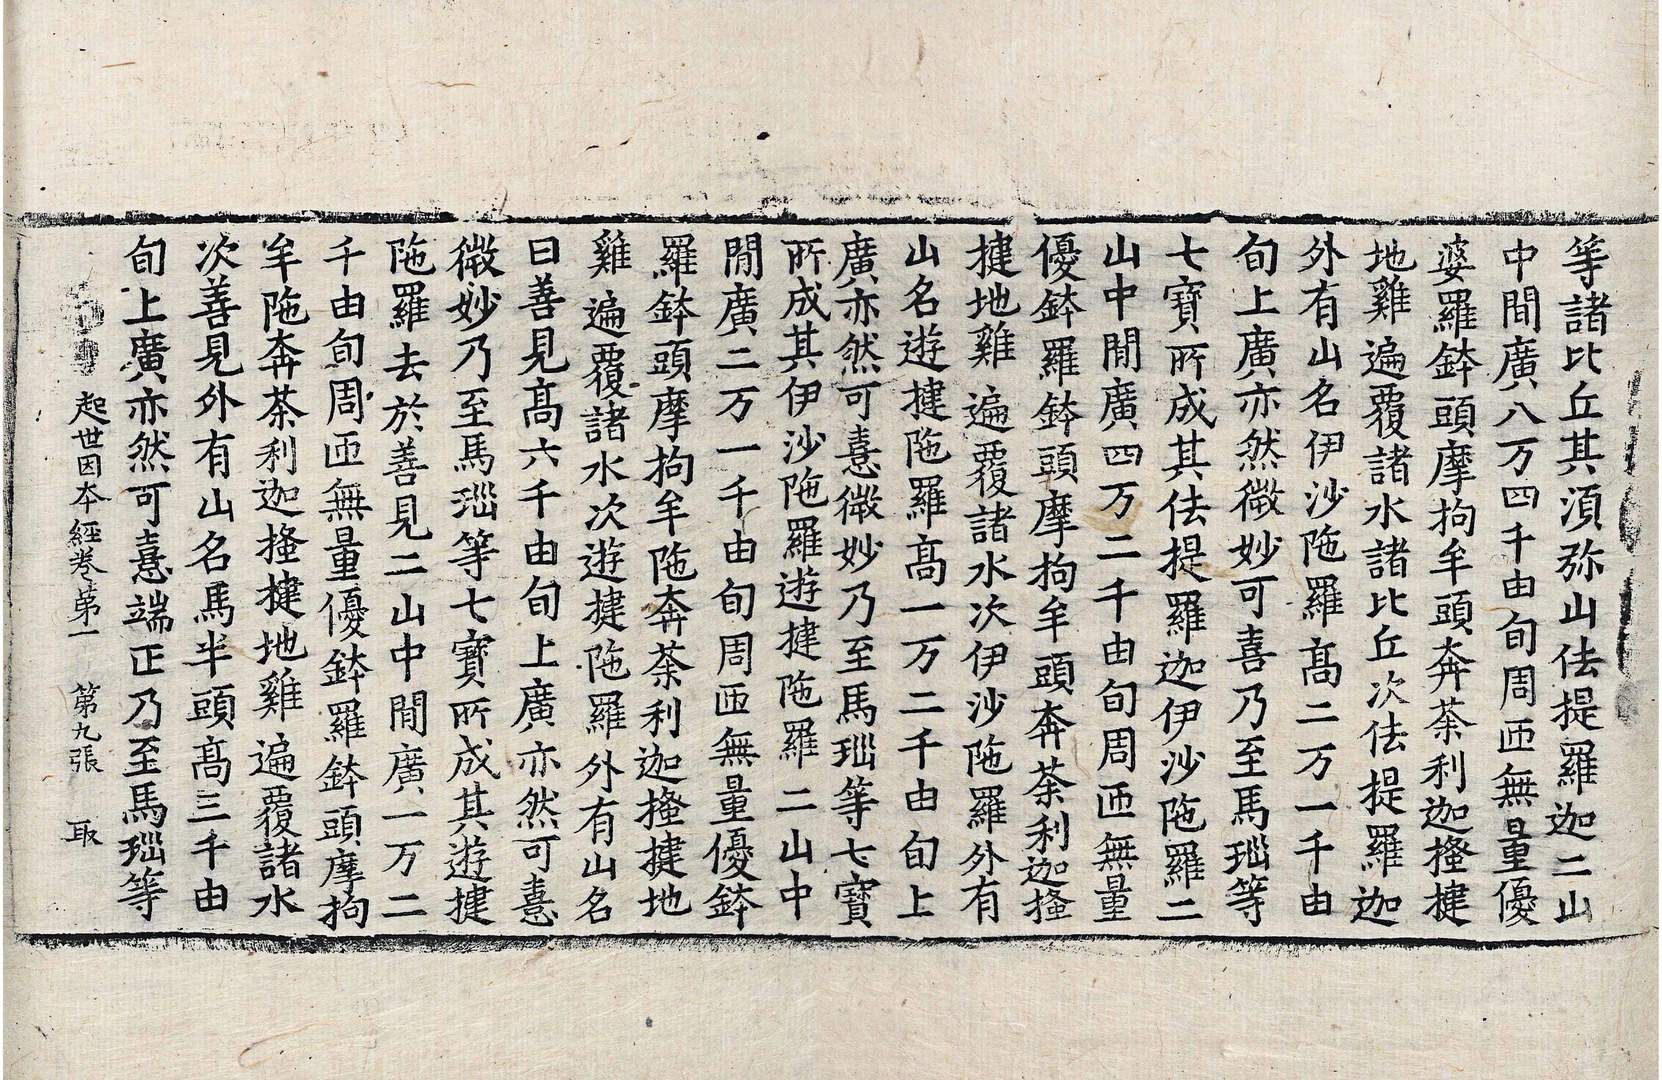 等諸比丘其湏弥山佉提羅迦二山
中間廣八万四千由旬周匝無量優
婆羅鉢頭摩拘牟頭奔荼利迦搔揵
地雞遍覆諸水諸比丘次佉提羅迦
外有山名伊沙陁羅髙二万一千由
旬上廣亦然微妙可喜乃至馬瑙等
七寶所成其佉提羅迦伊沙陁羅二
山中間廣四万二千由旬周匝無量
優鉢羅鉢頭摩拘牟頭奔荼利迦搔
揵地雞遍覆諸水次伊沙陁羅外有
山名遊揵陁羅髙一万二千由旬上
廣亦然可憙微妙乃至馬瑙等七寶
所成其伊沙陁羅遊揵陁羅二山中
間廣二万一千由旬周匝無量優鉢
羅鉢頭摩拘牟陁奔荼利迦搔揵地
雞遍覆諸水次遊揵陁羅外有山名
曰善見髙六千由旬上廣亦然可憙
微妙乃至馬瑙等七寶所成其遊揵
陁羅去於善見二山中間廣一万二
千由旬周匝無量優鉢羅鉢頭摩拘
牟陁奔荼利迦搔揵地雞遍覆諸水
次善見外有山名馬半頭髙三千由
旬上廣亦然可憙端正乃至馬瑙等
起世因本經卷第一 第九張 取